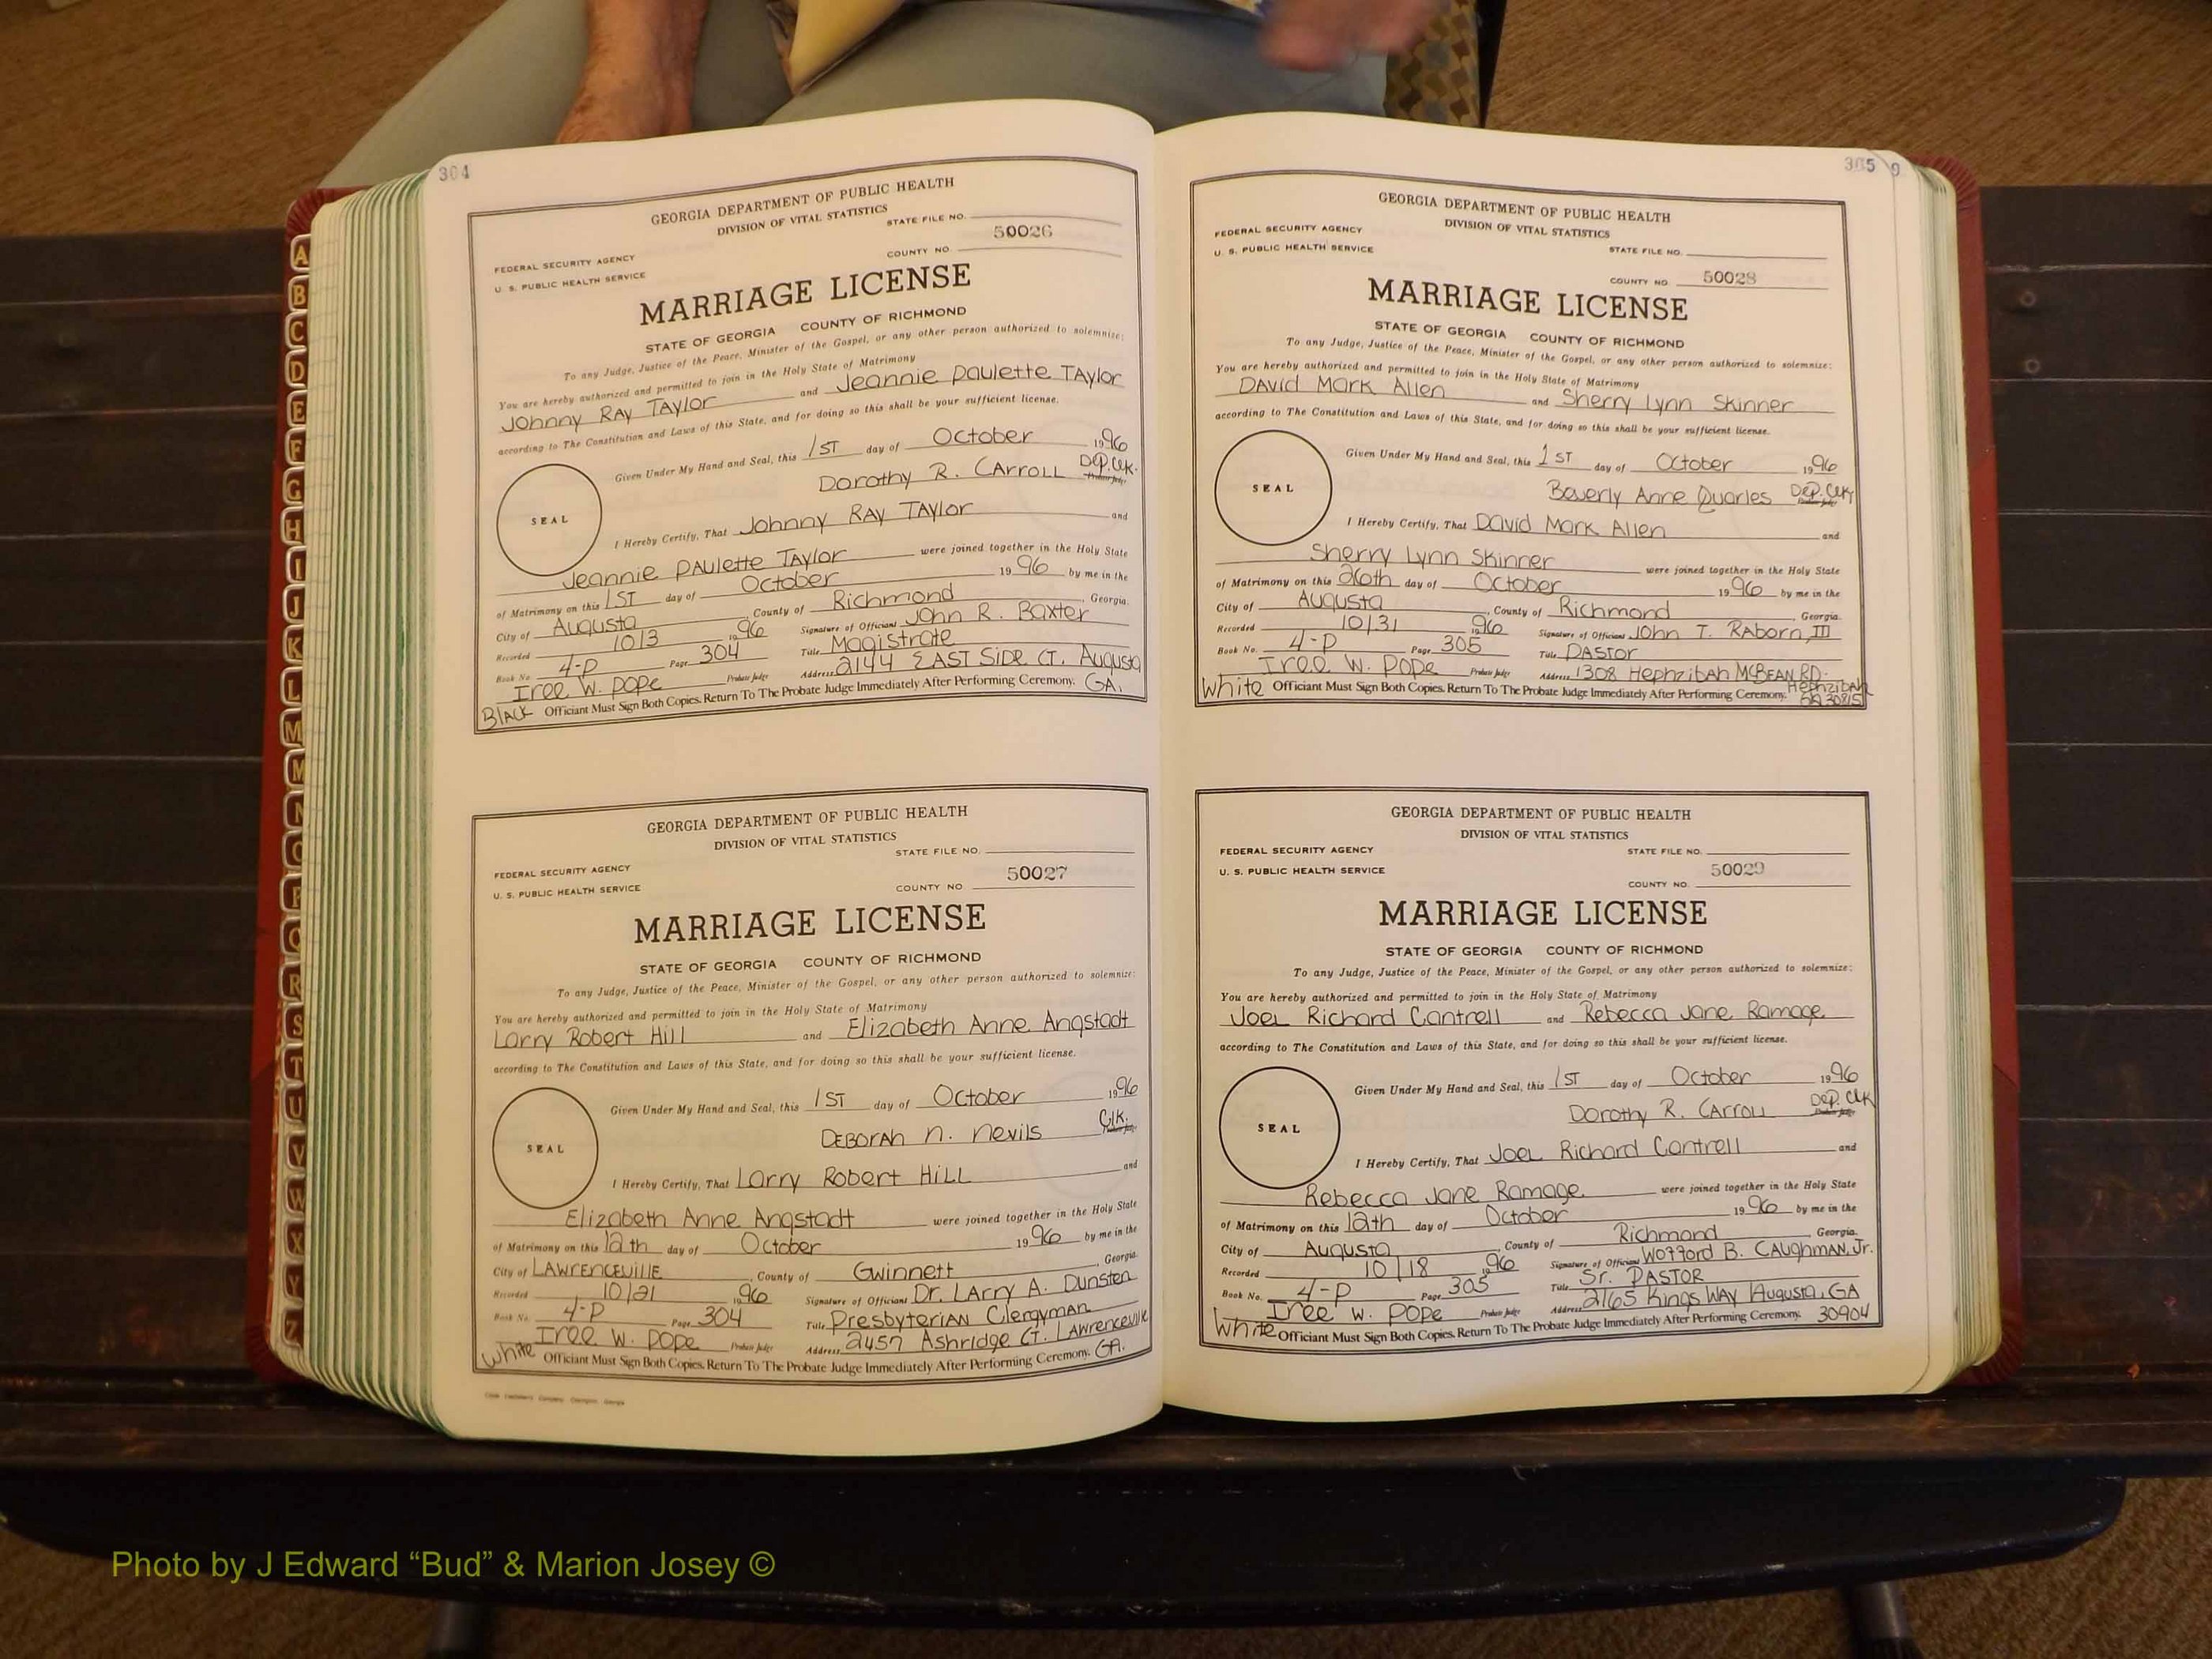 304
GEORGIA DEPARTMENT OF PUBLIC HEALTH
DIVISION OF VITAL STATISTICS
STATE FILE NO.
50026
FEDERAL SECURITY AGENCY
COUNTY NO
U. S. PUBLIC HEALTH SERVICE
MARRIAGE LICENSE
STATE OF GEORGIA COUNTY OF RICHMOND
To any Judge, Justice of the Peace, Minister of the Gospel, or any other person authorized to solemnize:
You are hereby authorized and permitted to join in the Holy State of Matrimony
Johnny RAY TAYLOR and Jeannie PAulette TAylor
according to The Constitution and Laws of this State, and for doing so this shall be your sufficient license.
Given Under My Hand and Seal, this 1ST day of October 1996
Dorothy R. CARROLL Dep. Clk. Probate Judge
SEAL
I Hereby Certify, That Johnny RAY TAYLOR and
Jeannie PAulette TAYLOR were joined together in the Holy State
of Matrimony on this 1ST day of October 1996 by me in the
City of Augusta, County of Richmond, Georgia.
Recorded 10/3 1996 Signature of Officiant John R. Baxter
Book No. 4-P Page 304 Title Magistrate
Iree W. Pope Probate Judge Address 2144 EAST SIDE CT. Augusta
GA.
Black Officiant Must Sign Both Copies. Return To The Probate Judge Immediately After Performing Ceremony.
GEORGIA DEPARTMENT OF PUBLIC HEALTH
DIVISION OF VITAL STATISTICS
STATE FILE NO.
FEDERAL SECURITY AGENCY
50027
U. S. PUBLIC HEALTH SERVICE
COUNTY NO
MARRIAGE LICENSE
STATE OF GEORGIA COUNTY OF RICHMOND
To any Judge, Justice of the Peace, Minister of the Gospel, or any other person authorized to solemnize:
You are hereby authorized and permitted to join in the Holy State of Matrimony
Larry Robert Hill and Elizabeth Anne Angstadt
according to The Constitution and Laws of this State, and for doing so this shall be your sufficient license.
Given Under My Hand and Seal, this 1ST day of October 1996
DEBORAH N. NEVILS Clk. Probate Judge
SEAL
I Hereby Certify, That Larry Robert HILL and
Elizabeth Anne Angstadt were joined together in the Holy State
of Matrimony on this 12th day of October 1996 by me in the
City of LAWRENCEVILLE, County of Gwinnett, Georgia.
Recorded 10/21 1996 Signature of Officiant Dr. LArry A. Dunsten
Book No. 4-P Page 304 Title Presbyterian Clergyman
Iree W. Pope Probate Judge Address 2457 Ashridge CT. Lawrenceville
White Officiant Must Sign Both Copies. Return To The Probate Judge Immediately After Performing Ceremony. GA.
305
9
GEORGIA DEPARTMENT OF PUBLIC HEALTH
DIVISION OF VITAL STATISTICS
FEDERAL SECURITY AGENCY
STATE FILE NO.
U. S. PUBLIC HEALTH SERVICE
COUNTY NO 50028
MARRIAGE LICENSE
STATE OF GEORGIA COUNTY OF RICHMOND
To any Judge, Justice of the Peace, Minister of the Gospel, or any other person authorized to solemnize:
You are hereby authorized and permitted to join in the Holy State of Matrimony
DAVID Mark Allen and Sherry Lynn Skinner
according to The Constitution and Laws of this State, and for doing so this shall be your sufficient license.
Given Under My Hand and Seal, this 1ST day of October 1996
Beverly Anne Quarles Dep. Clk. Probate Judge
SEAL
I Hereby Certify, That David Mark Allen and
Sherry Lynn Skinner were joined together in the Holy State
of Matrimony on this 26th day of October 1996 by me in the
City of Augusta, County of Richmond, Georgia.
Recorded 10/31 1996 Signature of Officiant John T. RAborn, III
Book No. 4-P Page 305 Title PASTOR
Iree W. Pope Probate Judge Address 1308 Hephzibah McBEAN RD.
White Officiant Must Sign Both Copies. Return To The Probate Judge Immediately After Performing Ceremony. Hephzibah
GA 30815
GEORGIA DEPARTMENT OF PUBLIC HEALTH
DIVISION OF VITAL STATISTICS
FEDERAL SECURITY AGENCY
STATE FILE NO.
U. S. PUBLIC HEALTH SERVICE
50029
COUNTY NO.
MARRIAGE LICENSE
STATE OF GEORGIA COUNTY OF RICHMOND
To any Judge, Justice of the Peace, Minister of the Gospel, or any other person authorized to solemnize:
You are hereby authorized and permitted to join in the Holy State of Matrimony
Joel Richard Cantrell and Rebecca Jane Ramage
according to The Constitution and Laws of this State, and for doing so this shall be your sufficient license.
Given Under My Hand and Seal, this 1ST day of October 1996
Dorothy R. CARROLL Dep. Clk Probate Judge
SEAL
I Hereby Certify, That Joel Richard Cantrell and
Rebecca Jane Ramage were joined together in the Holy State
of Matrimony on this 12th day of October 1996 by me in the
City of Augusta, County of Richmond, Georgia.
Recorded 10/18 1996 Signature of Officiant Wofford B. CAughman, Jr.
Book No. 4-P Page 305 Title Sr. PASTOR
Iree W. Pope Probate Judge Address 2165 Kings WAY Augusta, GA
White Officiant Must Sign Both Copies. Return To The Probate Judge Immediately After Performing Ceremony. 30904
A
B
C
D
E
F
G
H
I
J
K
L
M
M
N
O
P
Q
R
S
T
U
V
W
X
Y
Z
Photo by J Edward “Bud” & Marion Josey ©